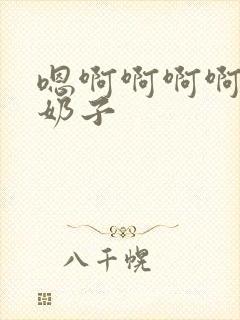 嗯啊啊啊啊
奶子
八千幌